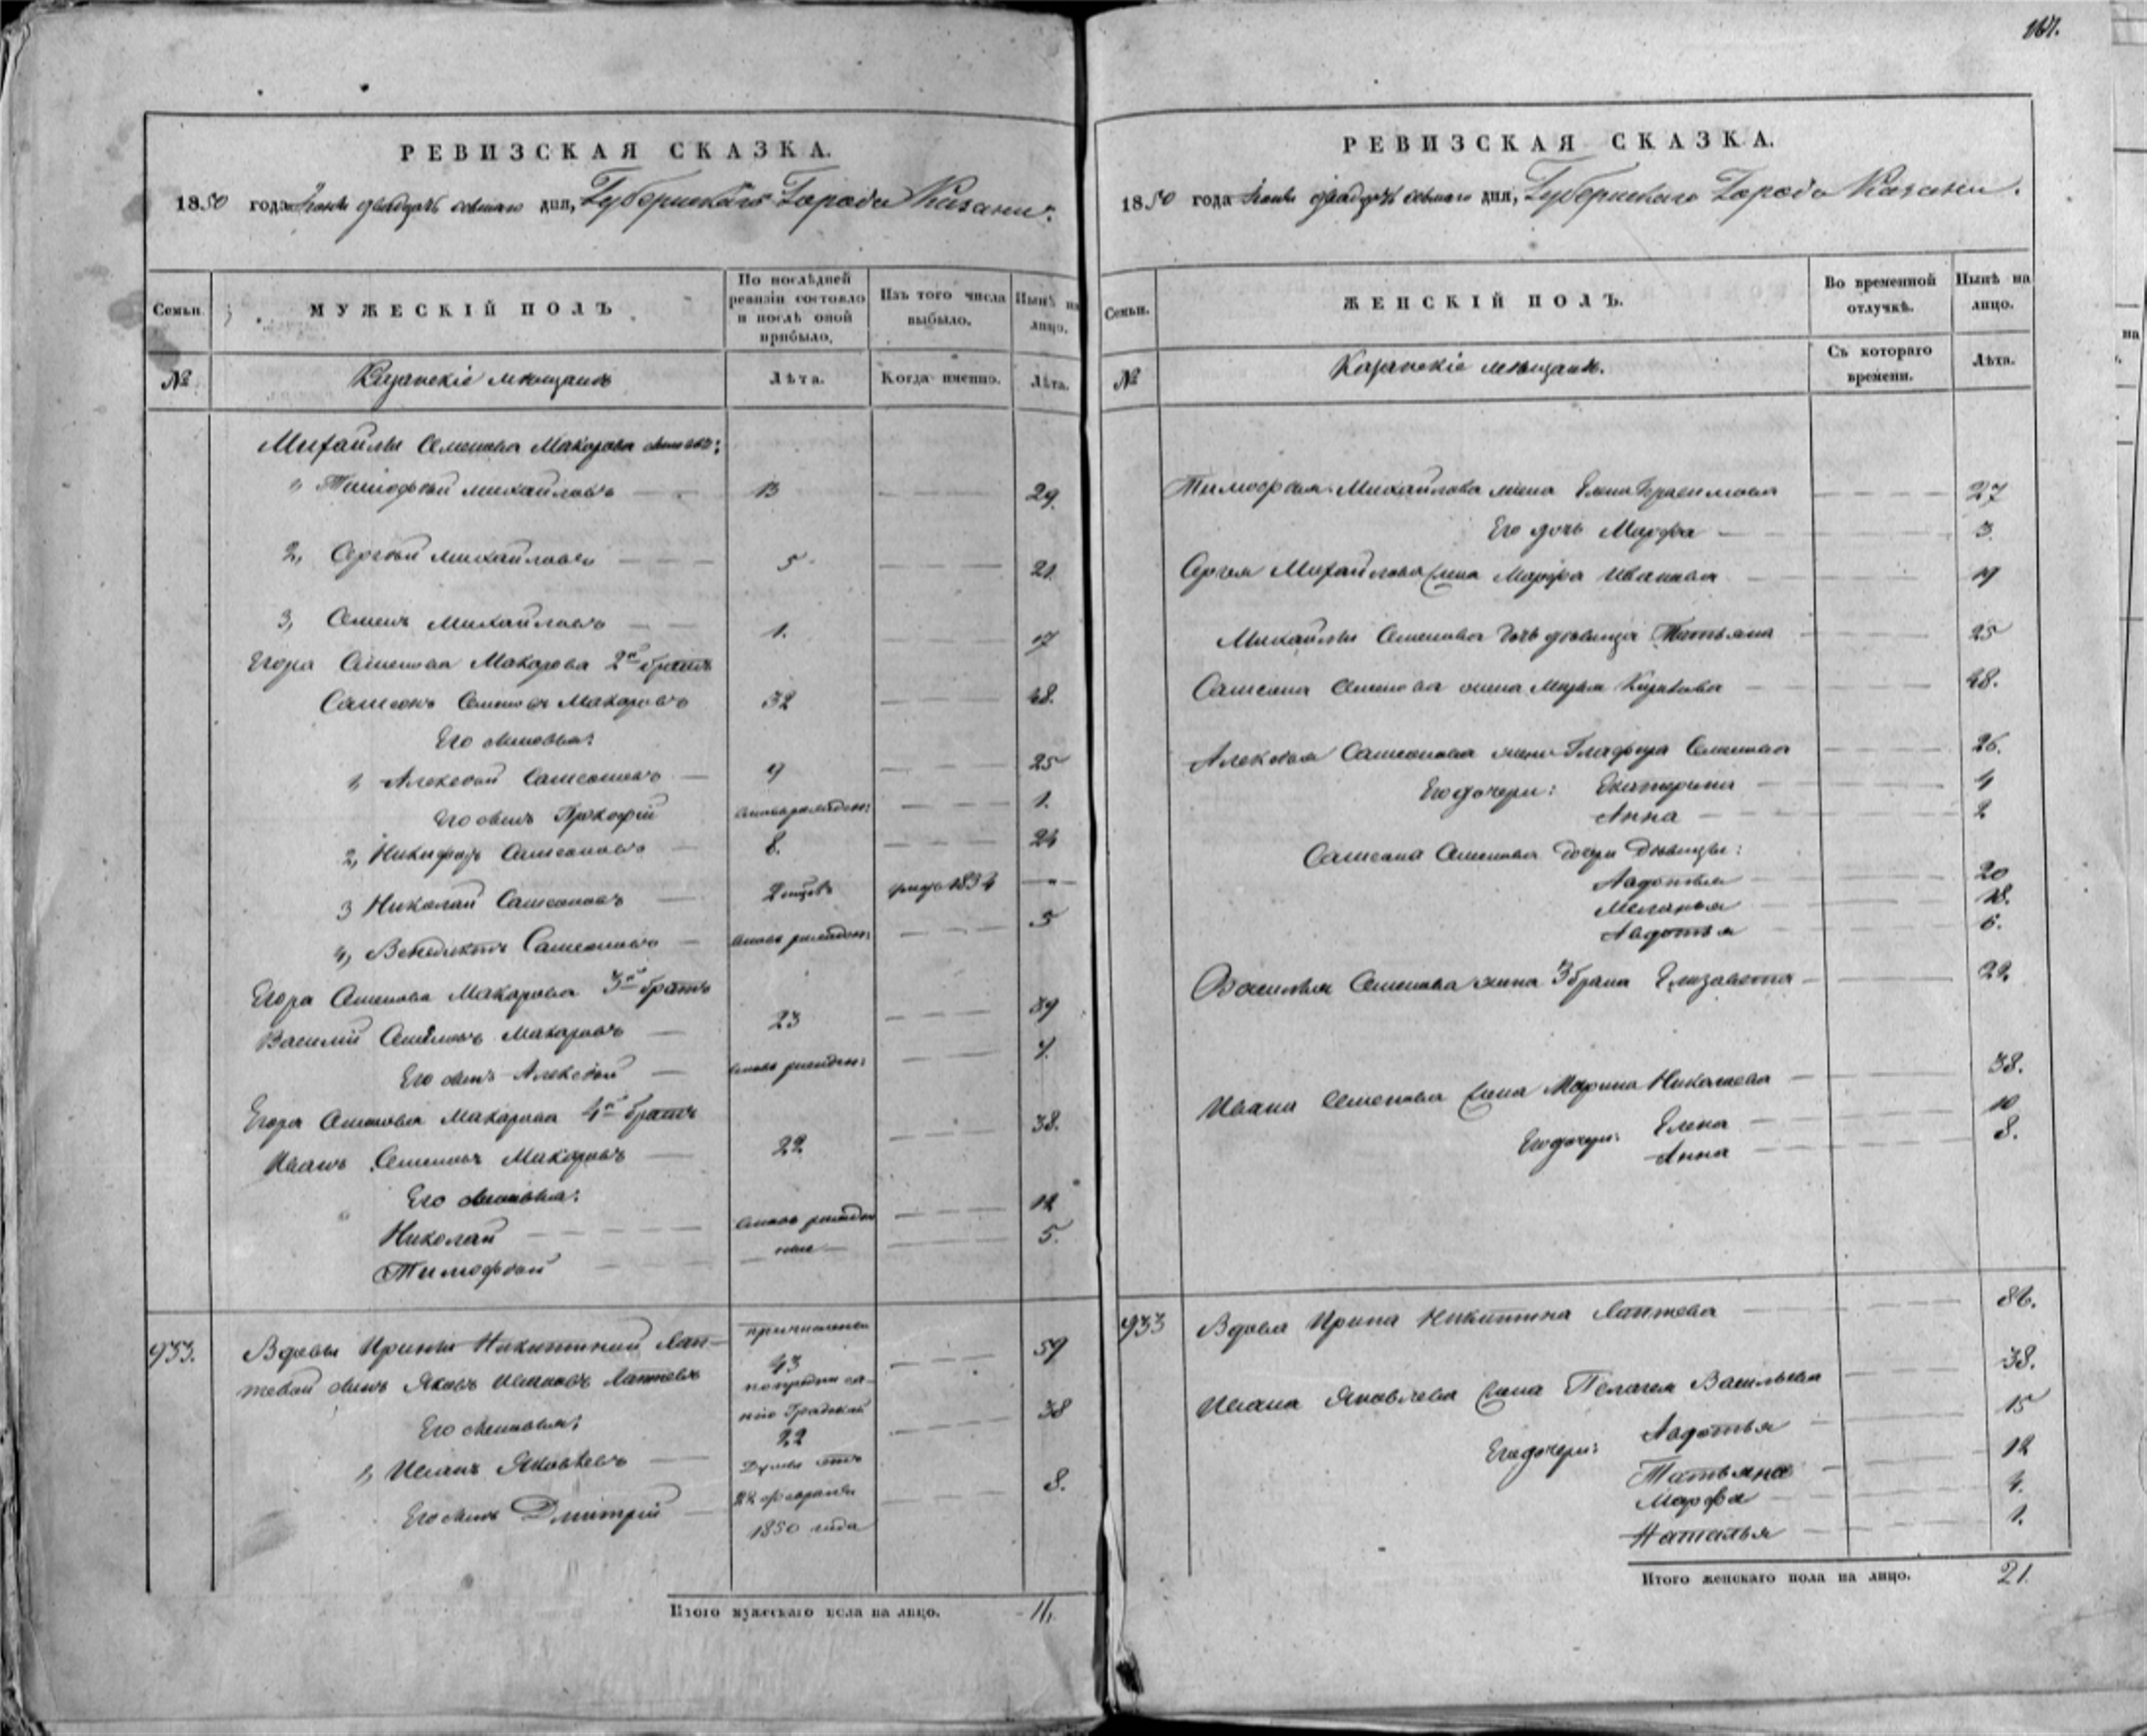 РЕВИЗСКАЯ СКАЗКА.
1850 года двадцать седьмаго дня, Губернскаго Города Казани.
Семьи.
МУЖЕСКІЙ ПОЛЪ
По послѣдней ревизіи состояло и послѣ оной прибыло.
Изъ того числа выбыло.
Нынѣ на лицо.
№
Казанскіе мѣщане
Лѣта.
Когда именно.
Лѣта.
Михайлы Семенова Макарова сыновья:
1, Тимофѣй Михайловъ 13 29.
2, Сергѣй Михайловъ 5 21
3, Семенъ Михайловъ 1. 17
Егора Семенова Макарова 2й братъ
Самсонъ Семеновъ Макаровъ 32 48.
Его сыновья:
1, Алексѣй Самсоновъ 9 25
Его сынъ Прокофій вновь рожден: 1.
2, Никифоръ Самсоновъ 8. 24
3 Николай Самсоновъ 1834
4, Венедиктъ Самсоновъ вновь рожден: 5
Егора Семенова Макарова 3й братъ
Василій Семеновъ Макаровъ 23 39
Его сынъ Алексѣй вновь рожден:
Егора Семенова Макарова 4й братъ
Иванъ Семеновъ Макаровъ 22 38.
Его сыновья:
Николай вновь рожден 12
Тимофѣй 5.
933. Вдовы Ирины Никитиной Лап-
тевой сынъ Яковъ Ивановъ Лаптевъ 43 59
Его сыновья:
1, Иванъ Яковлевъ 22 38
Его сынъ Дмитрій 8.
22 февраля
1850 года
Итого мужескаго пола на лицо. 11.
РЕВИЗСКАЯ СКАЗКА.
1850 года двадцать седьмаго дня, Губернскаго Города Казани.
Семьи.
ЖЕНСКІЙ ПОЛЪ.
Во временной отлучкѣ.
Нынѣ на лицо.
№
Казанскіе мѣщане.
Съ котораго времени.
Лѣта.
Тимофея Михайлова жена Елена Герасимова 27
Его дочь Марфа 3.
Сергея Михайлова жена Марфа Иванова 19
Михайлы Семенова дочь девица Татьяна 25
Самсона Семенова жена Марья 48.
Алексѣя Самсонова жена Глафира Семенова 26.
Его дочери: Екатерина 4
Анна 2
Самсона Семенова дочери Девицы:
Авдотья 20
Меланья 18.
Авдотья 6.
Василья Семенова жена 3 брака Елизавета 22.
Ивана Семенова жена Марина Николаева 38.
Его дочери: Елена 10
Анна 8.
933 Вдова Ирина Никитина Лаптева 86.
Ивана Яковлева жена Пелагея Васильева 38.
Его дочери: Авдотья 15
Татьяна 12
Марфа 4.
Наталья 1.
Итого женскаго пола на лицо. 21.